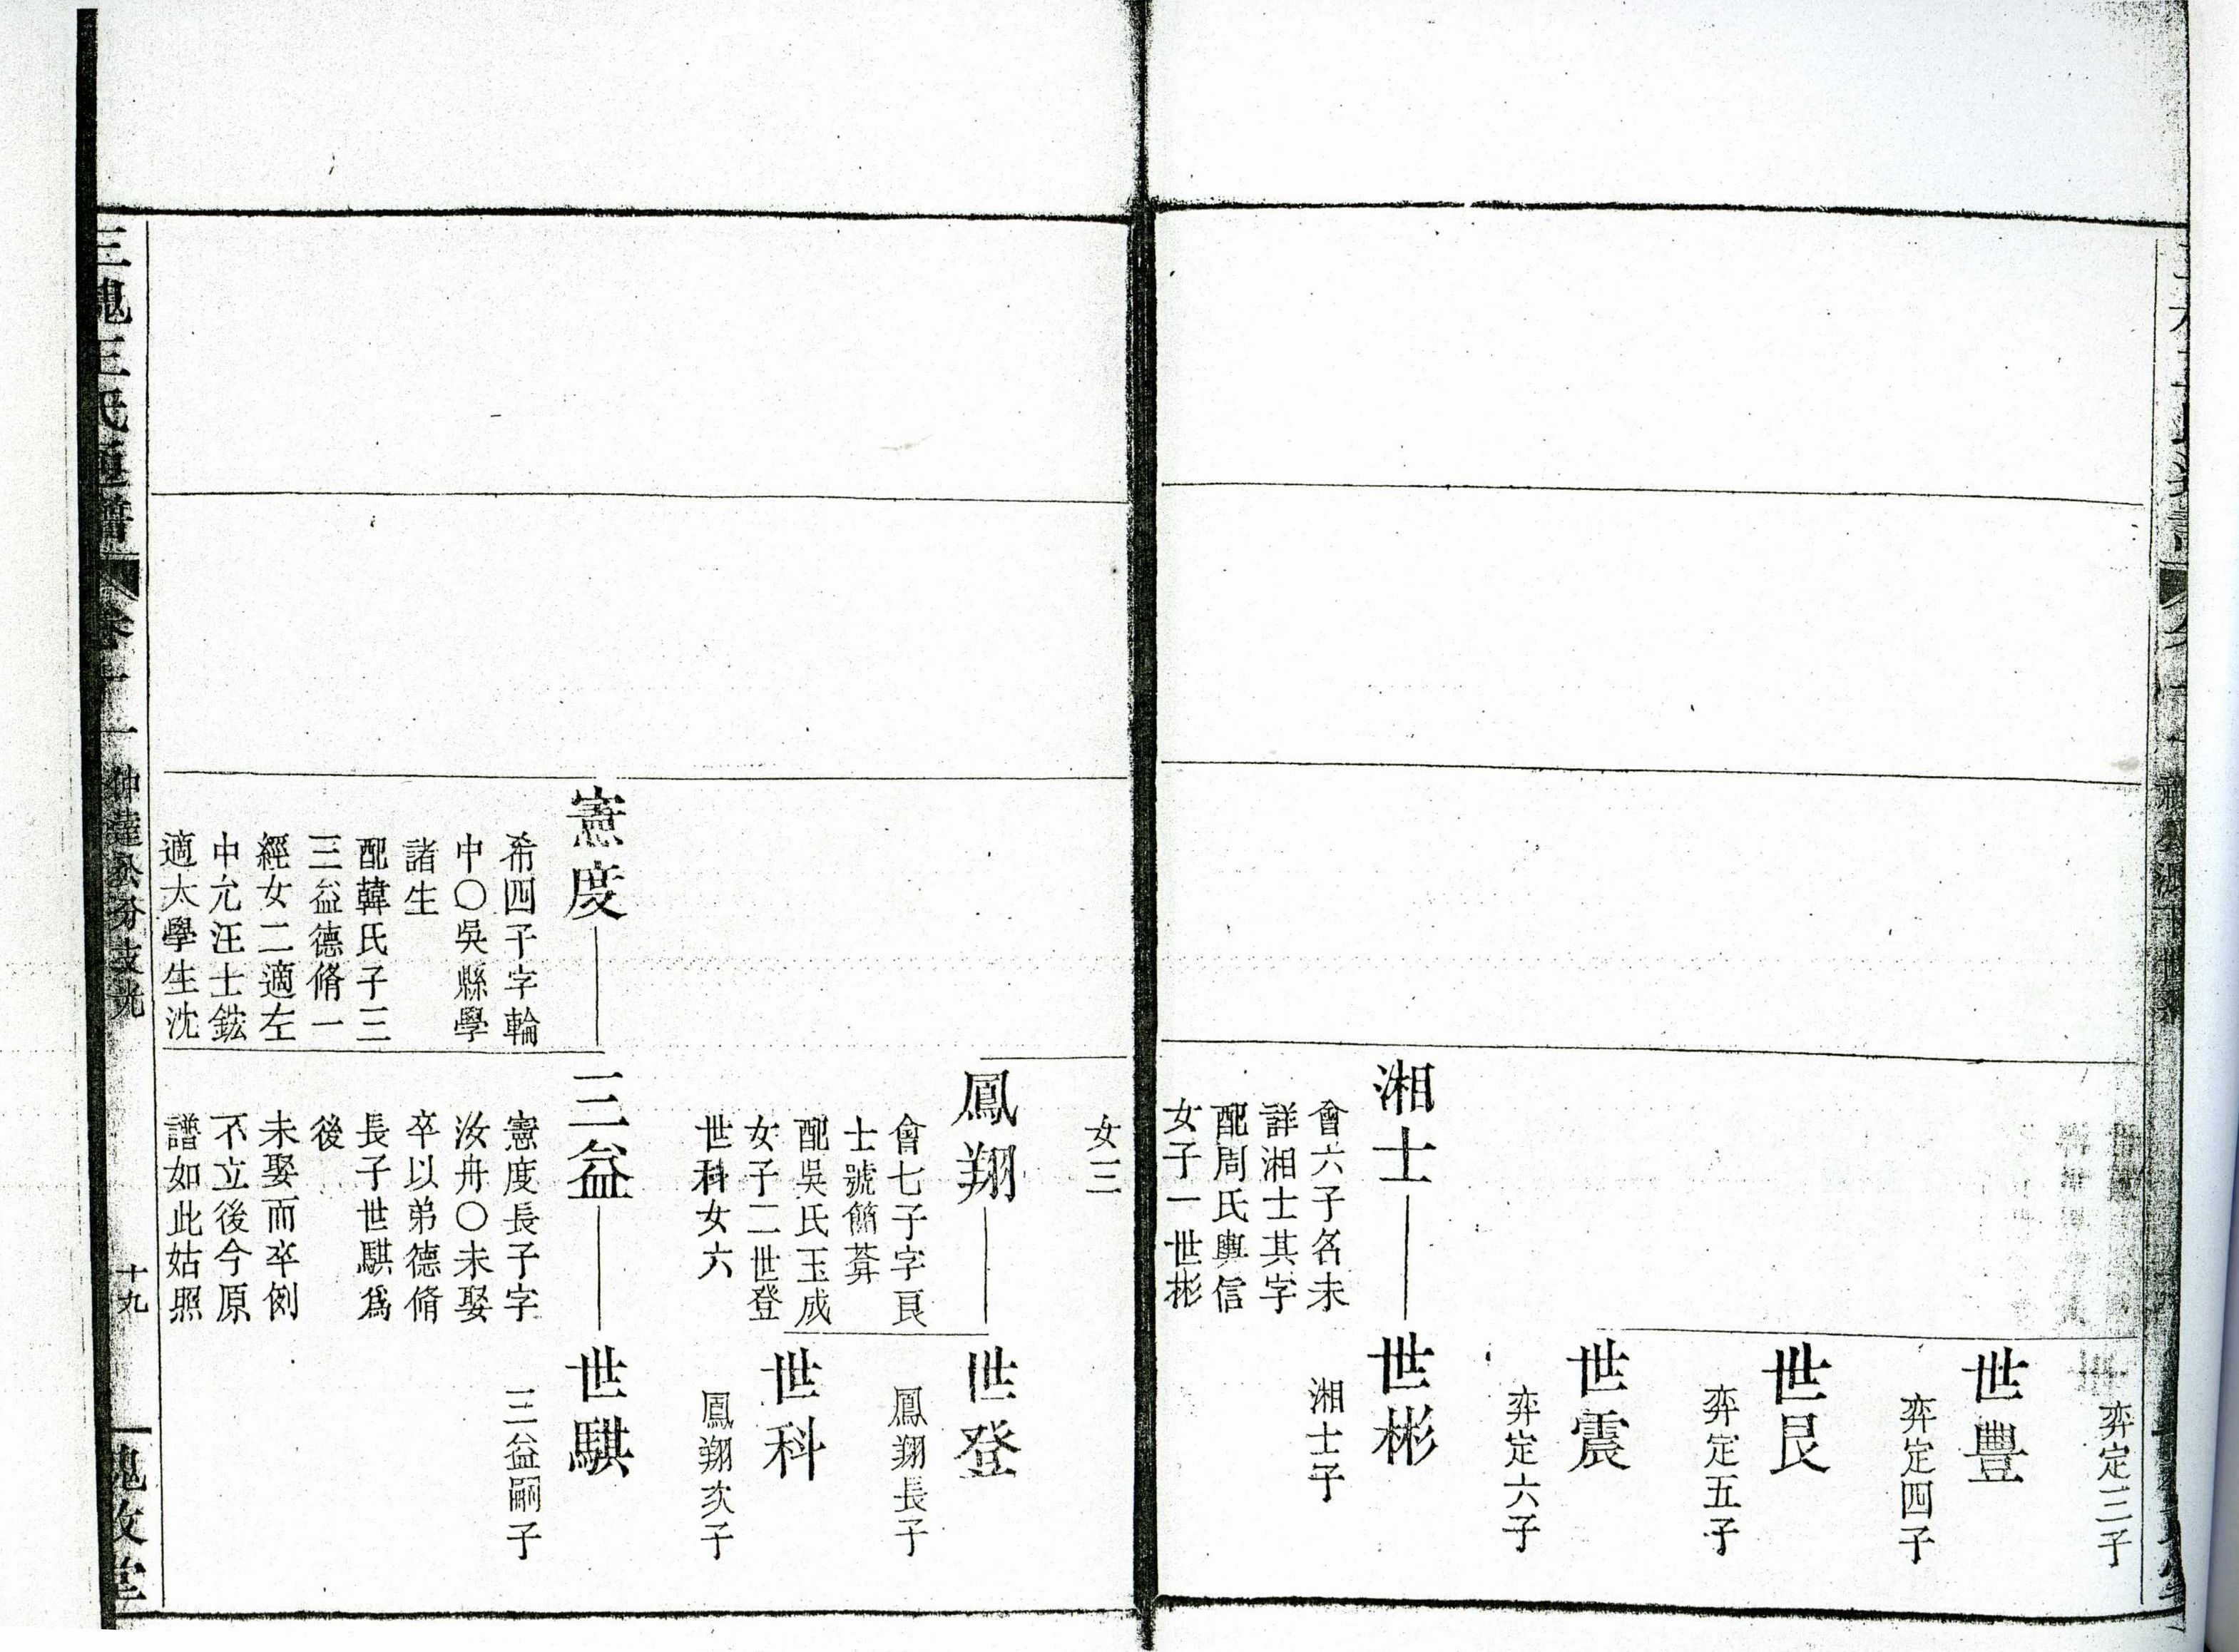 弈定三子
世豐
弈定四子
世艮
弈定五子
世震
弈定六子
湘士
會六子名未
詳湘士其字
配周氏輿信
女子一世彬
世彬
湘士子
女三
鳳翔
會七子字頁
士號
配吳氏玉成
女子二世登
世科女六
世登
鳳翔長子
世科
鳳翔次子
憲度
希四子字輪
中〇吳縣學
諸生
配韓氏子三
三益德脩一
經女二適左
中允汪士鋐
適太學生沈
三益
憲度長子字
汝舟〇未娶
卒以弟德脩
長子世騏爲
後
未娶而卒例
不立後今原
譜如此姑照
世騏
三益嗣子
三槐王氏通譜
卷十一
十九
槐蔭堂